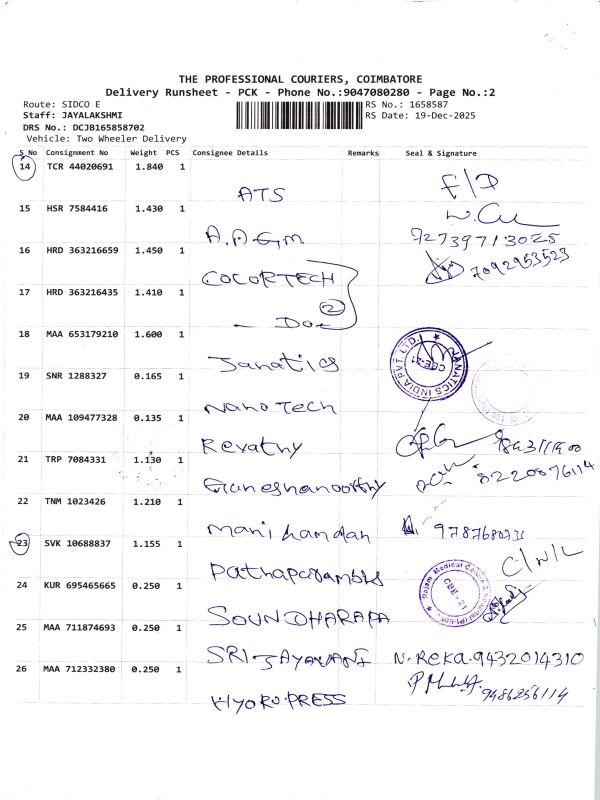 THE PROFESSIONAL COURIERS, COIMBATORE
Delivery Runsheet - PCK - Phone No.:9047080280 - Page No.:2
Route: SIDCO E
RS No.: 1658587
Staff: JAYALAKSHMI
RS Date: 19-Dec-2025
DRS No.: DCJB165858702
Vehicle: Two Wheeler Delivery
S No Consignment No Weight PCS Consignee Details Remarks Seal & Signature
14 TCR 44020691 1.840 1
ATS F/D
15 HSR 7584416 1.430 1
A.A.G.M 72739713025
16 HRD 363216659 1.450 1
COCORTECH 7092953523
17 HRD 363216435 1.410 1
2
- Do -
18 MAA 653179210 1.600 1
Janatics JANATICS INDIA PVT. LTD. CBE-21
19 SNR 1288327 0.165 1
Nano Tech
20 MAA 109477328 0.135 1
Revathy
21 TRP 7084331 1.130 1
Ganeshamoorthy 8220876114
22 TNM 1023426 1.210 1
Manikandan
23 SVK 10688837 1.155 1
Pathaparambls C/N/L
24 KUR 695465665 0.250 1
SOUNDHARAPA Rajam Medical CBE-21
25 MAA 711874693 0.250 1
SRI JAYAVANI N. Reka. 9432014310
26 MAA 712332380 0.250 1
HYDRO PRESS 9486256114